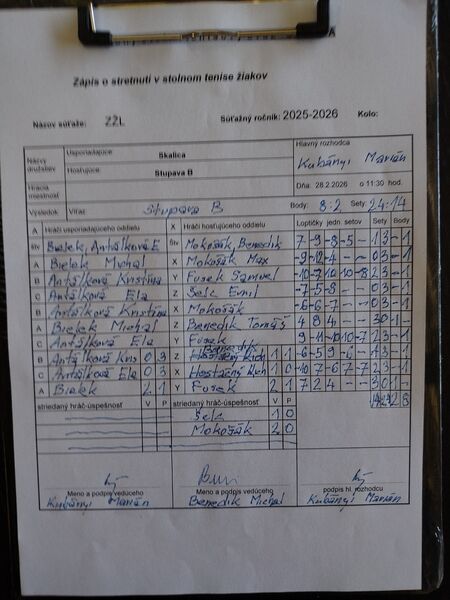 Zápis o stretnutí v stolnom tenise žiakov
Názov súťaže: ZŽL Súťažný ročník: 2025-2026 Kolo:
Názvy družstiev Usporiadajúce: Skalica Hlavný rozhodca
Hosťujúce: Stupava B Kubányi Marián
Hracia miestnosť Dňa: 28.2.2026 o 11:30 hod.
Výsledok Víťaz: Stupava B Body: 8:2 Sety: 24:14
A Hráči usporiadajúceho oddielu X Hráči hosťujúceho oddielu Loptičky jedn. setov Sety Body
štv Bielek, Antálková E štv Mokošák, Benedik 7 -9 -8 -5 - 1 3 - 1
A Bielek Michal X Mokošák Max -9 -12 -4 - - 0 3 - 1
B Antálková Kristína Y Fusek Samuel -10 -7 10 10 -8 2 3 - 1
C Antálková Ela Z Šelc Emil -7 -5 -8 - - 0 3 - 1
B Antálková Kristína X Mokošák -6 -6 -7 - - 0 3 - 1
A Bielek Michal Z Benedik Tomáš 4 8 4 - - 3 0 1 -
C Antálková Ela Y Fusek 2 3 - 1
B Antálková Kris 0 3 Z 1 1 -6 -5 9 -6 - 1 3 - 1
C Antálková Ela 0 3 X 1 0 2 3 - 1
A Bielek 2 1 Y Fusek 2 1 7 2 4 - - 3 0 1 -
striedaný hráč-úspešnosť V P striedaný hráč-úspešnosť V P
Šelc 1 0
Mokošák 2 0
Meno a podpis vedúceho Meno a podpis vedúceho podpis hl. rozhodcu
Kubányi Marián Benedik Michal Kubányi Marián